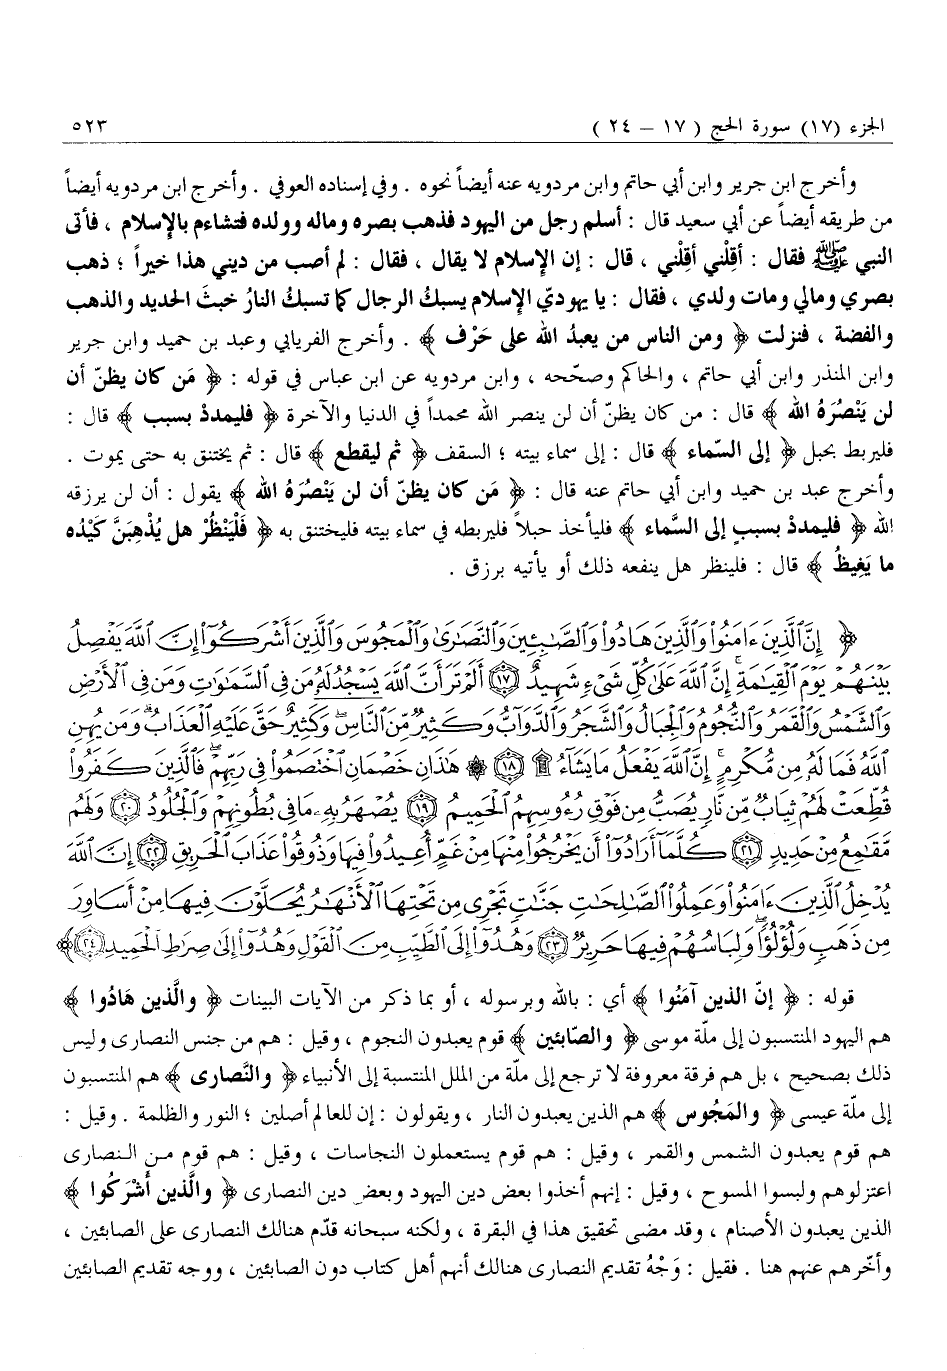 الجزء (١٧) سورة الحج ( ١٧ – ٢٤ ) ٥٢٣
وأخرج ابن جرير وابن أبي حاتم وابن مردويه عنه أيضاً نحوه . وفي إسناده العوفي . وأخرج ابن مردويه أيضاً
من طريقه أيضاً عن أبي سعيد قال : أسلم رجل من اليهود فذهب بصره وماله وولده فتشاءم بالإسلام ، فأتى
النبي ﷺ فقال : أقِلْني أقِلْني ، قال : إن الإسلام لا يقال ، فقال : لم أصب من ديني هذا خيراً ؛ ذهب
بصري ومالي ومات ولدي ، فقال : يا يهوديّ الإسلام يسبكُ الرجال كما تسبكُ النارُ خبثَ الحديد والذهب
والفضة ، فنزلت ﴿ ومن الناس من يعبدُ الله على حَرْف ﴾ . وأخرج الفريابي وعبد بن حميد وابن جرير
وابن المنذر وابن أبي حاتم ، والحاكم وصحّحه ، وابن مردويه عن ابن عباس في قوله : ﴿ مَن كان يظنّ أن
لن يَنْصُرَهُ الله ﴾ قال : من كان يظنّ أن لن ينصر الله محمداً في الدنيا والآخرة ﴿ فليمددْ بسبب ﴾ قال :
فليربط بحبل ﴿ إلى السّماء ﴾ قال : إلى سماء بيته ؛ السقف ﴿ ثم ليقطع ﴾ قال : ثم يختنق به حتى يموت .
وأخرج عبد بن حميد وابن أبي حاتم عنه قال : ﴿ مَن كان يظنّ أن لن يَنْصُرَهُ الله ﴾ يقول : أن لن يرزقه
الله ﴿ فليمددْ بسببٍ إلى السَّماء ﴾ فليأخذ حبلاً فليربطه في سماء بيته فليختنق به ﴿ فَلْيَنْظُرْ هل يُذْهِبَنَّ كَيْدُه
ما يَغِيظُ ﴾ قال : فلينظر هل ينفعه ذلك أو يأتيه برزق .
﴿ إِنَّ ٱلَّذِينَ ءَامَنُوا۟ وَٱلَّذِينَ هَادُوا۟ وَٱلصَّٰبِـِٔينَ وَٱلنَّصَٰرَىٰ وَٱلْمَجُوسَ وَٱلَّذِينَ أَشْرَكُوٓا۟ إِنَّ ٱللَّهَ يَفْصِلُ
بَيْنَهُمْ يَوْمَ ٱلْقِيَٰمَةِ ۚ إِنَّ ٱللَّهَ عَلَىٰ كُلِّ شَىْءٍ شَهِيدٌ ﴿١٧﴾ أَلَمْ تَرَ أَنَّ ٱللَّهَ يَسْجُدُ لَهُۥ مَن فِى ٱلسَّمَٰوَٰتِ وَمَن فِى ٱلْأَرْضِ
وَٱلشَّمْسُ وَٱلْقَمَرُ وَٱلنُّجُومُ وَٱلْجِبَالُ وَٱلشَّجَرُ وَٱلدَّوَآبُّ وَكَثِيرٌ مِّنَ ٱلنَّاسِ ۖ وَكَثِيرٌ حَقَّ عَلَيْهِ ٱلْعَذَابُ ۗ وَمَن يُهِنِ
ٱللَّهُ فَمَا لَهُۥ مِن مُّكْرِمٍ ۚ إِنَّ ٱللَّهَ يَفْعَلُ مَا يَشَآءُ ۩ ﴿١٨﴾ ۞ هَٰذَانِ خَصْمَانِ ٱخْتَصَمُوا۟ فِى رَبِّهِمْ ۖ فَٱلَّذِينَ كَفَرُوا۟
قُطِّعَتْ لَهُمْ ثِيَابٌ مِّن نَّارٍ يُصَبُّ مِن فَوْقِ رُءُوسِهِمُ ٱلْحَمِيمُ ﴿١٩﴾ يُصْهَرُ بِهِۦ مَا فِى بُطُونِهِمْ وَٱلْجُلُودُ ﴿٢٠﴾ وَلَهُم
مَّقَٰمِعُ مِنْ حَدِيدٍ ﴿٢١﴾ كُلَّمَآ أَرَادُوٓا۟ أَن يَخْرُجُوا۟ مِنْهَا مِنْ غَمٍّ أُعِيدُوا۟ فِيهَا وَذُوقُوا۟ عَذَابَ ٱلْحَرِيقِ ﴿٢٢﴾ إِنَّ ٱللَّهَ
يُدْخِلُ ٱلَّذِينَ ءَامَنُوا۟ وَعَمِلُوا۟ ٱلصَّٰلِحَٰتِ جَنَّٰتٍ تَجْرِى مِن تَحْتِهَا ٱلْأَنْهَٰرُ يُحَلَّوْنَ فِيهَا مِنْ أَسَاوِرَ
مِن ذَهَبٍ وَلُؤْلُؤًا ۖ وَلِبَاسُهُمْ فِيهَا حَرِيرٌ ﴿٢٣﴾ وَهُدُوٓا۟ إِلَى ٱلطَّيِّبِ مِنَ ٱلْقَوْلِ وَهُدُوٓا۟ إِلَىٰ صِرَٰطِ ٱلْحَمِيدِ ﴿٢٤﴾ ﴾
قوله : ﴿ إنّ الذين آمَنُوا ﴾ أي : بالله وبرسوله ، أو بما ذكر من الآيات البينات ﴿ والَّذين هَادُوا ﴾
هم اليهود المنتسبون إلى ملّة موسى ﴿ والصّابئين ﴾ قوم يعبدون النجوم ، وقيل : هم من جنس النصارى وليس
ذلك بصحيح ، بل هم فرقة معروفة لا ترجع إلى ملّة من الملل المنتسبة إلى الأنبياء ﴿ والنَّصارى ﴾ هم المنتسبون
إلى ملّة عيسى ﴿ والمَجُوس ﴾ هم الذين يعبدون النار ، ويقولون : إن للعالم أصلين ؛ النور والظلمة . وقيل :
هم قوم يعبدون الشمس والقمر ، وقيل : هم قوم يستعملون النجاسات ، وقيل : هم قوم من النصارى
اعتزلوهم ولبسوا المسوح ، وقيل : إنهم أخذوا بعض دين اليهود وبعض دين النصارى ﴿ والَّذين أَشْرَكُوا ﴾
الذين يعبدون الأصنام ، وقد مضى تحقيق هذا في البقرة ، ولكنه سبحانه قدّم هنالك النصارى على الصابئين ،
وأخّرهم عنهم هنا . فقيل : وَجْهُ تقديم النصارى هنالك أنهم أهل كتاب دون الصابئين ، ووجه تقديم الصابئين